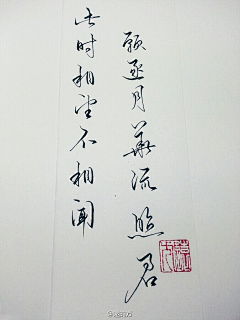 此时相望不相闻
願逐月華流照君